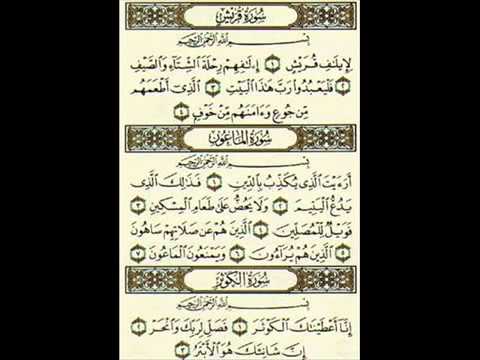 سُورَةُ قُرَيْشٍ
بِسْمِ اللَّهِ الرَّحْمَٰنِ الرَّحِيمِ
لِإِيلَٰفِ قُرَيْشٍ ١ إِۦلَٰفِهِمْ رِحْلَةَ الشِّتَآءِ وَالصَّيْفِ
٢ فَلْيَعْبُدُوا رَبَّ هَٰذَا الْبَيْتِ ٣ الَّذِىٓ أَطْعَمَهُم
مِّن جُوعٍ وَءَامَنَهُم مِّنْ خَوْفٍۭ ٤
سُورَةُ الْمَاعُونِ
بِسْمِ اللَّهِ الرَّحْمَٰنِ الرَّحِيمِ
أَرَءَيْتَ الَّذِى يُكَذِّبُ بِالدِّينِ ١ فَذَٰلِكَ الَّذِى
يَدُعُّ الْيَتِيمَ ٢ وَلَا يَحُضُّ عَلَىٰ طَعَامِ الْمِسْكِينِ ٣
فَوَيْلٌ لِّلْمُصَلِّينَ ٤ الَّذِينَ هُمْ عَن صَلَاتِهِمْ سَاهُونَ
٥ الَّذِينَ هُمْ يُرَآءُونَ ٦ وَيَمْنَعُونَ الْمَاعُونَ ٧
سُورَةُ الْكَوْثَرِ
بِسْمِ اللَّهِ الرَّحْمَٰنِ الرَّحِيمِ
إِنَّآ أَعْطَيْنَٰكَ الْكَوْثَرَ ١ فَصَلِّ لِرَبِّكَ وَانْحَرْ ٢
إِنَّ شَانِئَكَ هُوَ الْأَبْتَرُ ٣